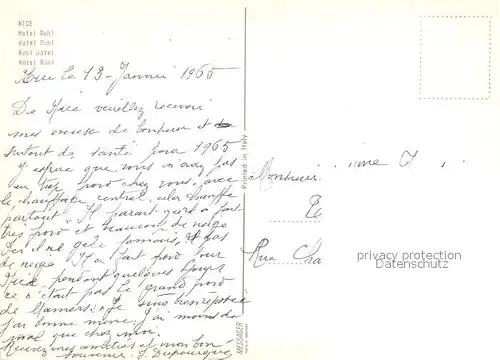 NICE
Hotel Ruhl
Hotel Ruhl
Ruhl Hotel
Hotel Ruhl
Nice le 13 Janvier 1965
De Nice veuillez recevoir
mes voeux de bonheur et de
surtout de santé pour 1965
J espère que vous n'avez pas
eu trop froid chez vous, avec
le chauffage central, cela chauffe
partout. Il parait qu'il a fait
très froid et beaucoup de neige
Ici il ne gèle jamais, pas
de neige. Il a fait froid pour
Nice pendant quelques jours
ce n'était pas le grand froid
de Mamers. Je suis bien reposée
j'ai bonne mine. J'ai moins de
mal que chez moi.
Recevez mes amitiés et mon bon
souvenir.
Printed in Italy
MESSAGER
Monsieur
Rue Cha
privacy protection
Datenschutz